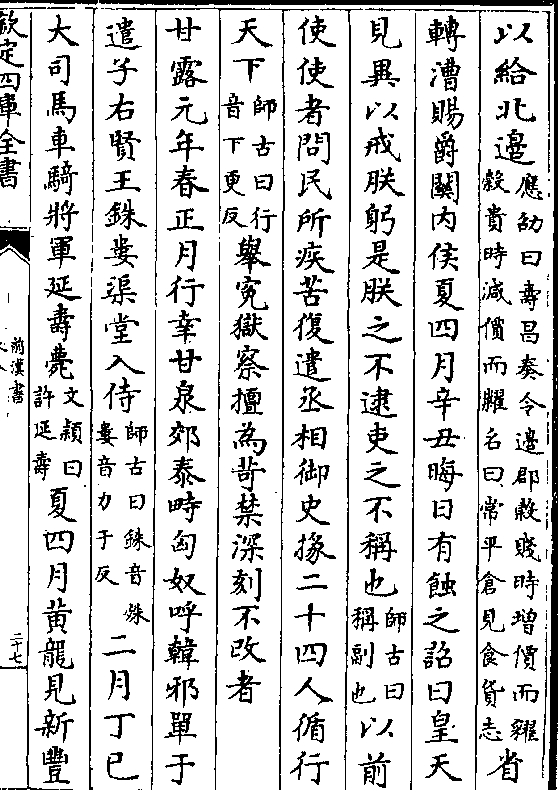 以給北邊應劭曰壽昌奏令邊郡穀賤時增價而糴穀貴時減價而糶名曰常平倉見食貨志省
轉漕賜爵關内侯夏四月辛丑晦日有蝕之詔曰皇天
見異以戒朕躬是朕之不逮吏之不稱也師古曰稱副也以前
使使者問民所疾苦復遣丞相御史掾二十四人循行
天下師古曰行音下更反舉寃獄察擅為苛禁深刻不改者
甘露元年春正月行幸甘泉郊泰畤匈奴呼韓邪單于
遣子右賢王銖婁渠堂入侍師古曰銖音殊婁音力于反二月丁巳
大司馬車騎將軍延壽薨文頴曰許延壽夏四月黄龍見新豐
欽定四庫全書
前漢書
二十七